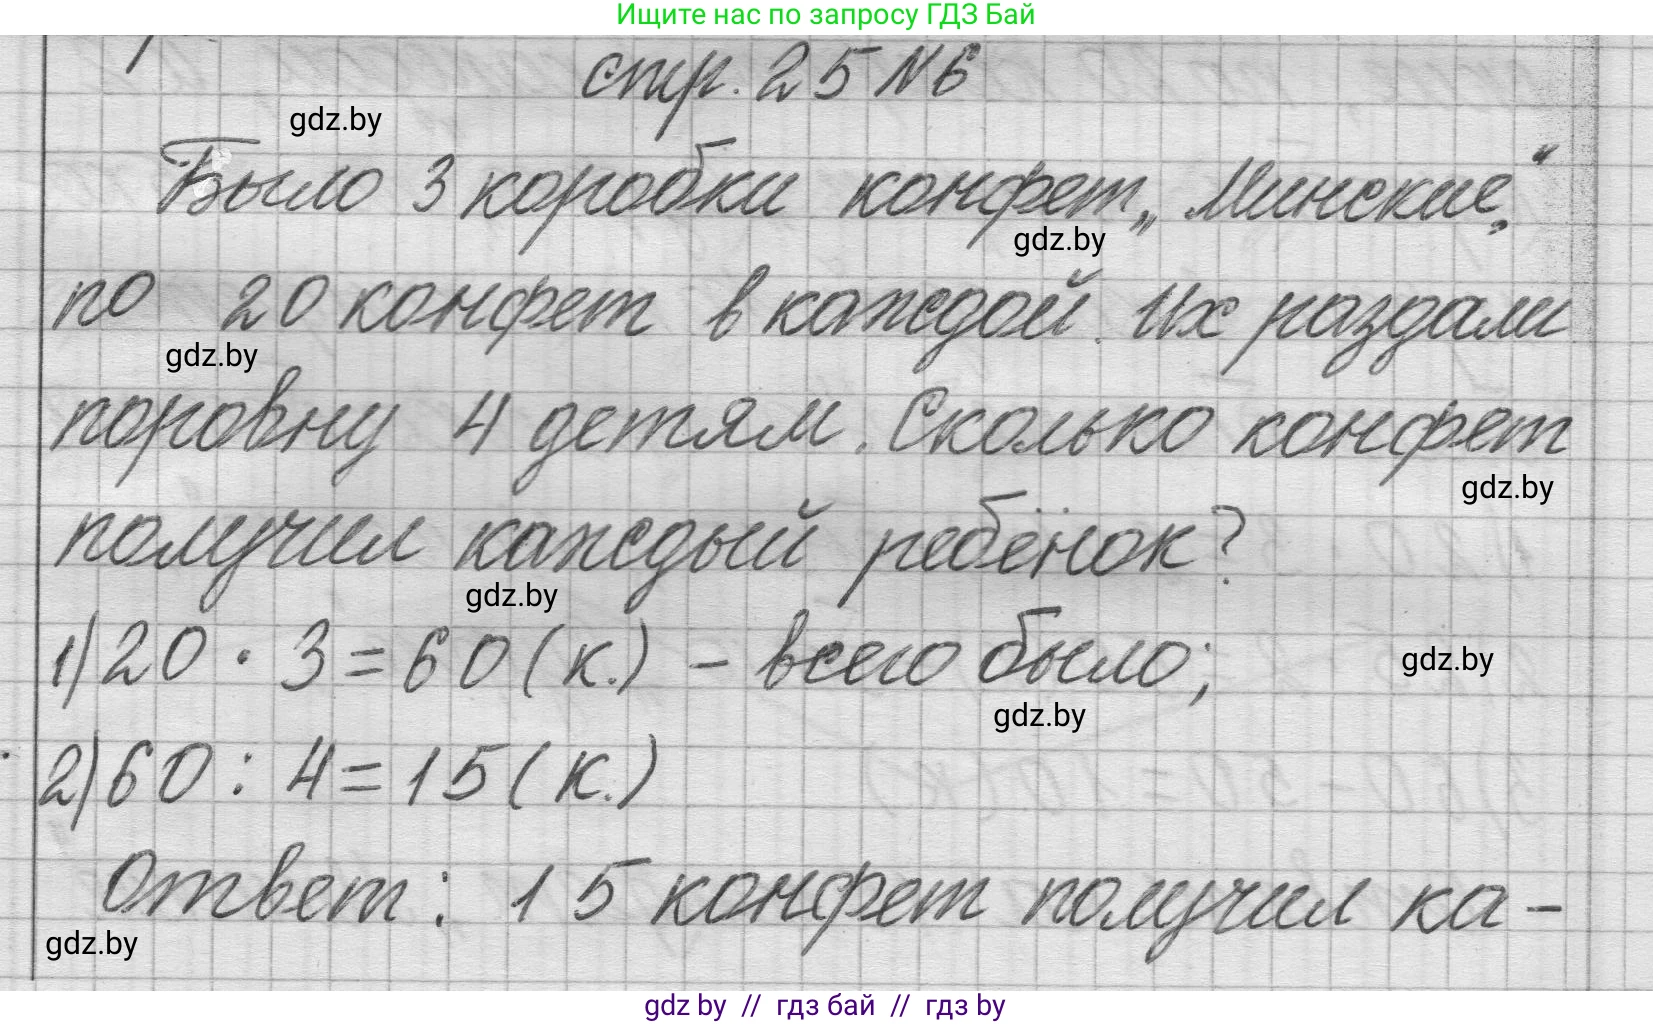 Ищите нас по запросу ГДЗ Бай
стр. 25 №6
gdz.by
Было 3 коробки конфет „Минские“,
gdz.by
по 20 конфет в каждой. Их раздали
gdz.by
поровну 4 детям. Сколько конфет
gdz.by
получил каждый ребёнок?
gdz.by
1) 20 · 3 = 60 (к.) – всего было;
gdz.by
gdz.by
2) 60 : 4 = 15 (к.)
Ответ: 15 конфет получил ка-
gdz.by
gdz by // гдз бай // гдз by